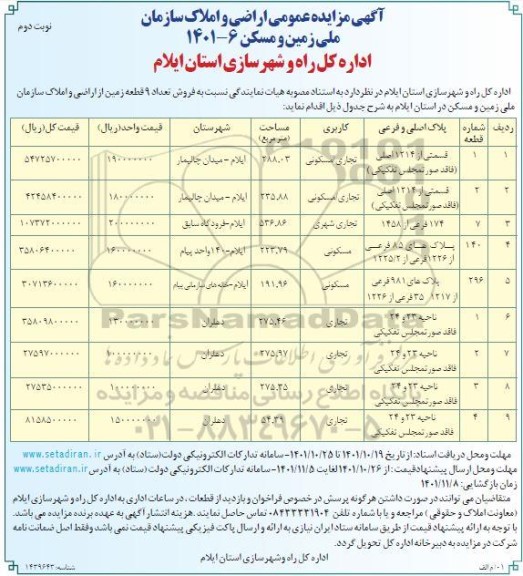 آگهی مزایده عمومی اراضی و املاک سازمان
ملی زمین و مسکن ۶-۱۴۰۱
نوبت دوم
اداره کل راه و شهرسازی استان ایلام
اداره کل راه و شهرسازی استان ایلام در نظر دارد به استناد مصوبه هیات نمایندگی نسبت به فروش تعداد ۹ قطعه زمین از اراضی و املاک سازمان
ملی زمین و مسکن در استان ایلام به شرح جدول ذیل اقدام نماید:
ردیف شماره قطعه پلاک اصلی و فرعی کاربری مساحت (متر مربع) شهرستان قیمت واحد (ریال) قیمت کل (ریال)
۱ ۱ قسمتی از ۱۲۱۴ اصلی (فاقد صورتمجلس تفکیکی) تجاری مسکونی ۲۸۸.۰۳ ایلام - میدان چالیمار ۱۹۰۰۰۰۰۰۰ ۵۴۷۲۵۷۰۰۰۰۰
۲ ۲ قسمتی از ۱۲۱۴ اصلی (فاقد صورتمجلس تفکیکی) تجاری مسکونی ۲۳۵.۸۸ ایلام - میدان چالیمار ۱۸۰۰۰۰۰۰۰ ۴۲۴۵۸۴۰۰۰۰۰
۳ ۷ ۱۷۴ فرعی از ۱۴۵۸ تجاری شهری ۵۳۶.۸۶ ایلام-فرودگاه سابق ۱۰۷۳۷۲۰۰۰۰۰۰
۴ ۱۴۰ پلاک های ۸۵ فرعی از ۱۲۲۶ فرعی از ۱۲۲۵/۲ مسکونی ۲۲۳.۷۹ ایلام-۱۴۰ واحد پیام ۱۶۰۰۰۰۰۰۰ ۳۵۸۰۶۴۰۰۰۰۰
۵ ۲۹۶ پلاک های ۹۸۱ فرعی از ۱۲۱۷ ۳۵ فرعی از ۱۲۲۶ مسکونی ۱۹۱.۹۶ ایلام-خانه‌های سازمانی پیام ۱۶۰۰۰۰۰۰۰ ۳۰۷۱۳۶۰۰۰۰۰
۶ ۱ ناحیه ۲۳ و ۲۴ فاقد صورتمجلس تفکیکی تجاری ۲۷۵.۴۶ دهلران ۱۳۰۰۰۰۰۰۰ ۳۵۸۰۹۸۰۰۰۰۰
۷ ۲ ناحیه ۲۳ و ۲۴ فاقد صورتمجلس تفکیکی تجاری ۲۷۵.۹۷ دهلران ۱۰۰۰۰۰۰۰۰ ۲۷۵۹۷۰۰۰۰۰۰
۸ ۳ ناحیه ۲۳ و ۲۴ فاقد صورتمجلس تفکیکی تجاری ۲۷۵.۳۵ دهلران ۱۰۰۰۰۰۰۰۰ ۲۷۵۳۵۰۰۰۰۰۰
۹ ۴ ناحیه ۲۳ و ۲۴ فاقد صورتمجلس تفکیکی تجاری ۵۴.۳۹ دهلران ۱۵۰۰۰۰۰۰۰ ۸۱۵۸۵۰۰۰۰۰
ParsNamadData
مرکز فرآوری اطلاعات پارس نماد داده ها
پایگاه اطلاع رسانی مناقصه و مزایده
۰۲۱-۸۸۳۴۹۶۷۰-۵
مهلت و محل دریافت اسناد: از تاریخ ۱۴۰۱/۱۰/۱۹ تا ۱۴۰۱/۱۰/۲۵- سامانه تدارکات الکترونیکی دولت (ستاد) به آدرس www.setadiran.ir
مهلت و محل ارسال پیشنهاد قیمت: از ۱۴۰۱/۱۰/۲۶ لغایت ۱۴۰۱/۱۱/۵- سامانه تدارکات الکترونیکی دولت (ستاد) به آدرس www.setadiran.ir
زمان بازگشایی: ۱۴۰۱/۱۱/۸
متقاضیان می توانند در صورت داشتن هرگونه پرسش در خصوص فراخوان و بازدید از قطعات، در ساعات اداری به اداره کل راه و شهرسازی ایلام
(معاونت املاک و حقوقی) مراجعه و یا با شماره تلفن ۰۸۴۳۲۲۲۱۹۰۴ تماس حاصل نمایند. هزینه انتشار آگهی به عهده برنده مزایده می باشد.
با توجه به ارائه پیشنهاد قیمت از طریق سامانه ستاد ایران نیازی به ارائه و ارسال پاکت فیزیکی پیشنهاد قیمت نمی باشد و فقط اصل ضمانت نامه
شرکت در مزایده به دبیرخانه اداره کل تحویل گردد.
اداره کل راه و شهرسازی استان ایلام
۰۱/م الف
شناسه: ۱۴۳۹۶۴۳